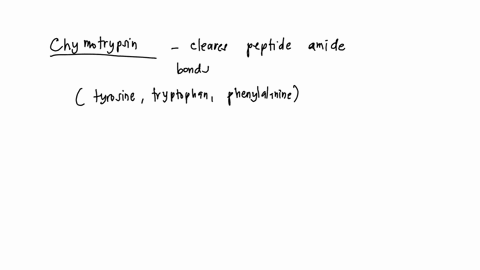 Chymotrypsin - cleaves peptide amide
bonds
( tyrosine, tryptophan, phenylalanine)